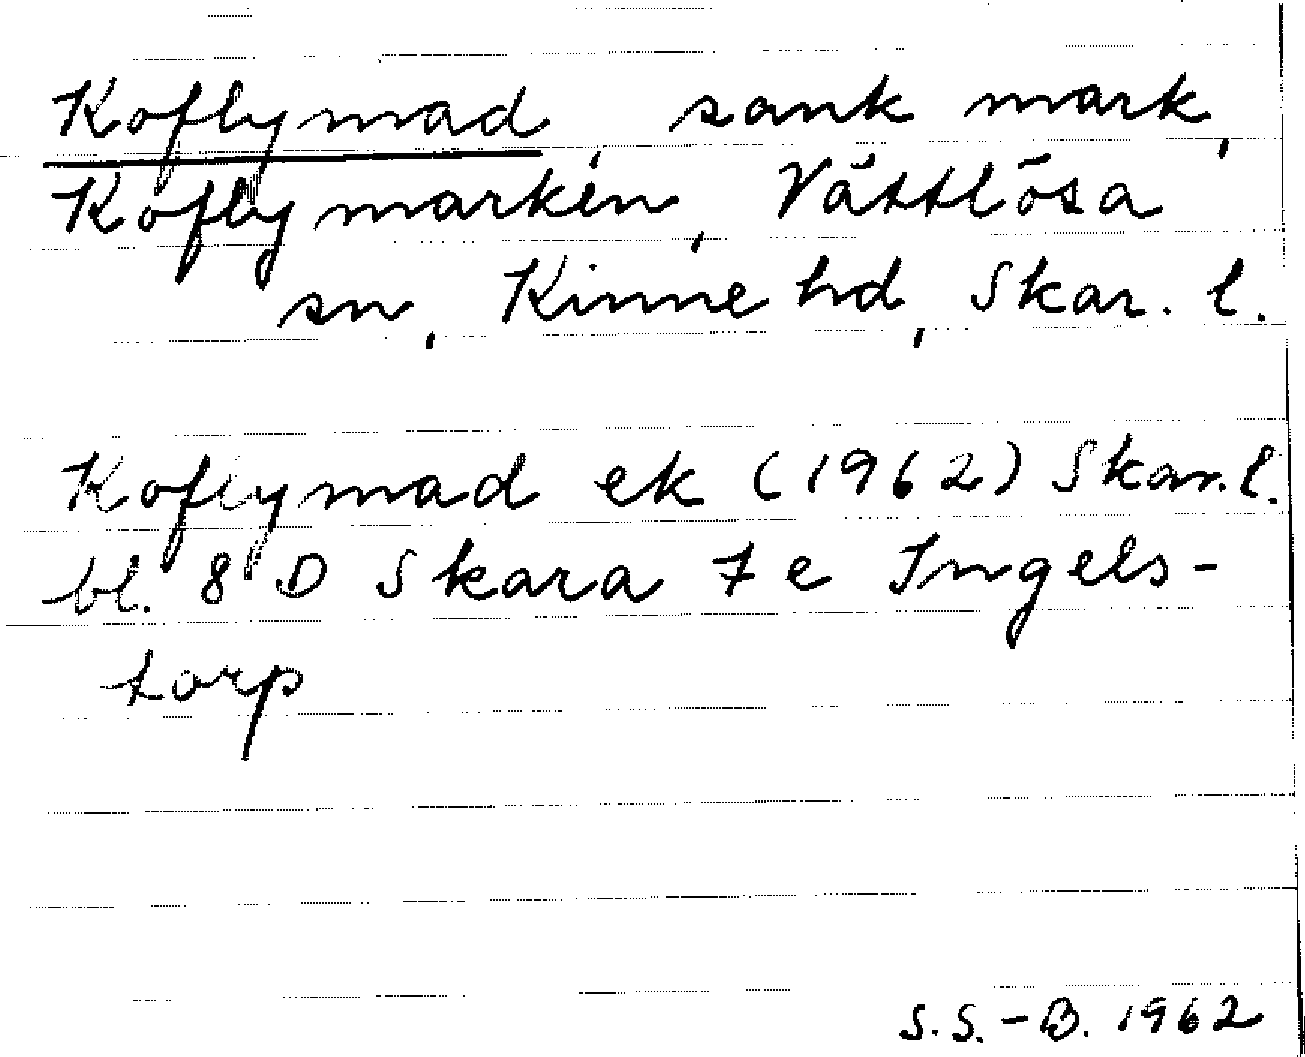 Koflymad, sank mark,
Koflymarken, Vättlösa
sn, Kinne hd, Skar. l.
Koflymad ek (1962) Skar. l.
bl. 8 D Skara 7 e Ingels-
torp
S. S. - B. 1962